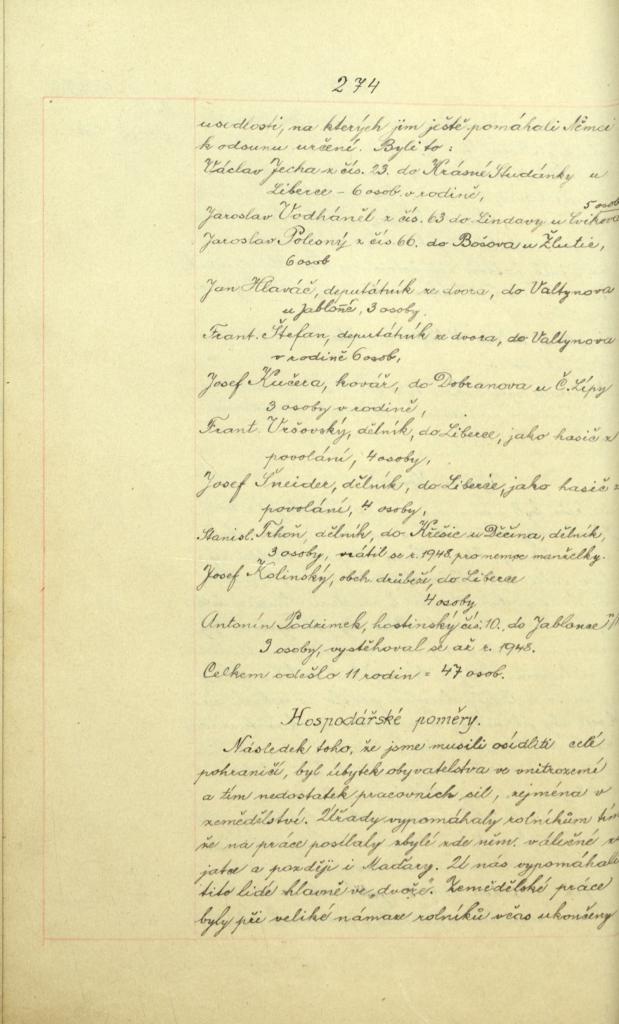 274
usedlosti, na kterých jim ještě pomáhali Němci
k odsunu určení. Byli to:
Václav Jecha z čís. 23. do Krásné Studánky u
Liberce - 6 osob v rodině,
5 osob
Jaroslav Vodháněl z čís. 63 do Lindavy u Cvikova
Jaroslav Polesný z čís 66. do Bošova u Žlutic,
6 osob
Jan Hlaváč, deputátník ze dvora, do Valtynova
u Jabloňé, 3 osoby.
Frant. Štefan, deputátník ze dvora, do Valtynova
v rodině 6 osob,
Josef Kučera, kovář, do Dobranova u Č. Lípy
3 osoby v rodině,
Frant. Vršovský, dělník, do Liberce, jako hasič z
povolání, 4 osoby,
Josef Šneider, dělník, do Liberce, jako hasič z
povolání, 4 osoby,
Stanisl. Trhoň, dělník, do Křešic u Děčína, dělník,
3 osoby, vrátil se r. 1948 pro nemoc manželky.
Josef Kolinský, obch. drůbeží, do Liberce
4 osoby
Antonín Podzimek, hostinský čís. 10. do Jablonce
3 osoby, vystěhoval se až r. 1948.
Celkem odešlo 11 rodin = 47 osob.
Hospodářské poměry.
Následek toho, že jsme musili osídliti celé
pohraničí, byl úbytek obyvatelstva ve vnitrozemí
a tím nedostatek pracovních sil, zejména v
zemědělství. Úřady vypomáhaly rolníkům tím
že na práce posílaly zbylé zde něm. válečné z
jatce a později i Maďary. U nás vypomáhali
tito lidé hlavně ve „dvoře". Zemědělské práce
byly při veliké námaze rolníků včas ukončeny